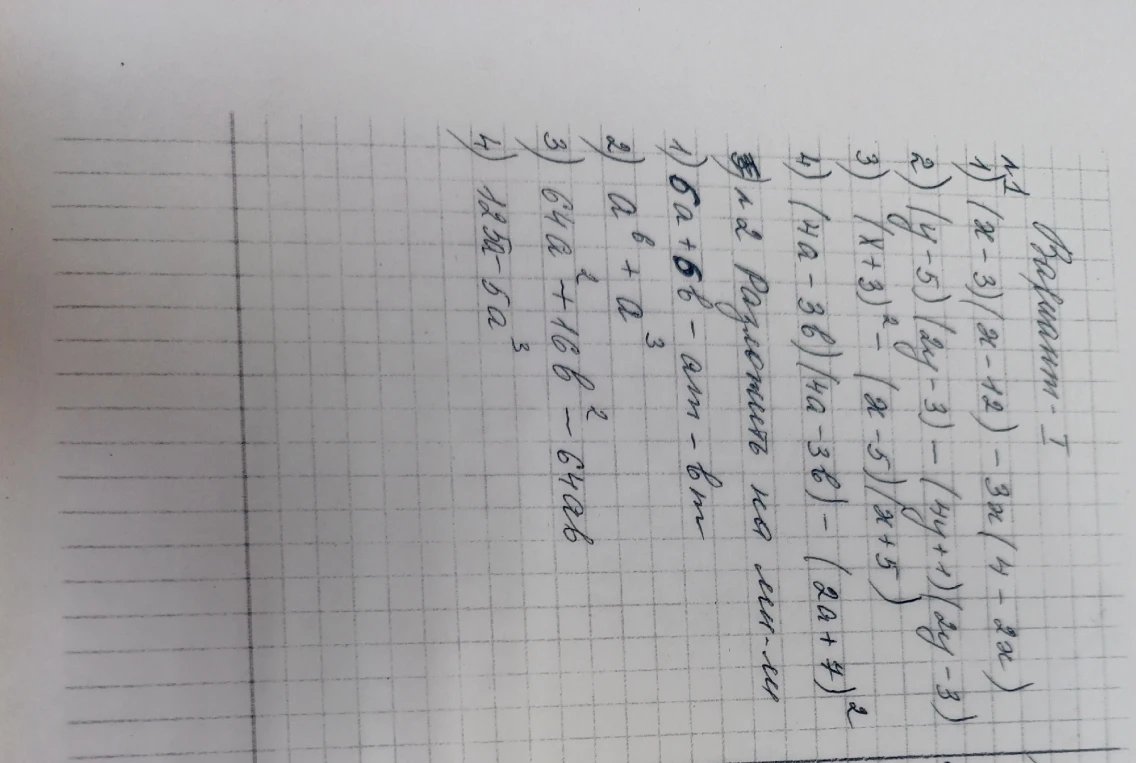 Вариант - I
№1
1) (x - 3)(x - 12) - 3x(4 - 2x)
2) (y - 5)(2y - 3) - (4y + 1)(2y - 3)
3) (x + 3)² - (x - 5)(x + 5)
4) (4a - 3b)(4a - 3b) - (2a + 7)²
№2 Разложить на мн-ли
1) 6a + 6b - am - bm
2) a⁶ + a³
3) 64a² + 16b² - 64ab
4) 125a - 5a³